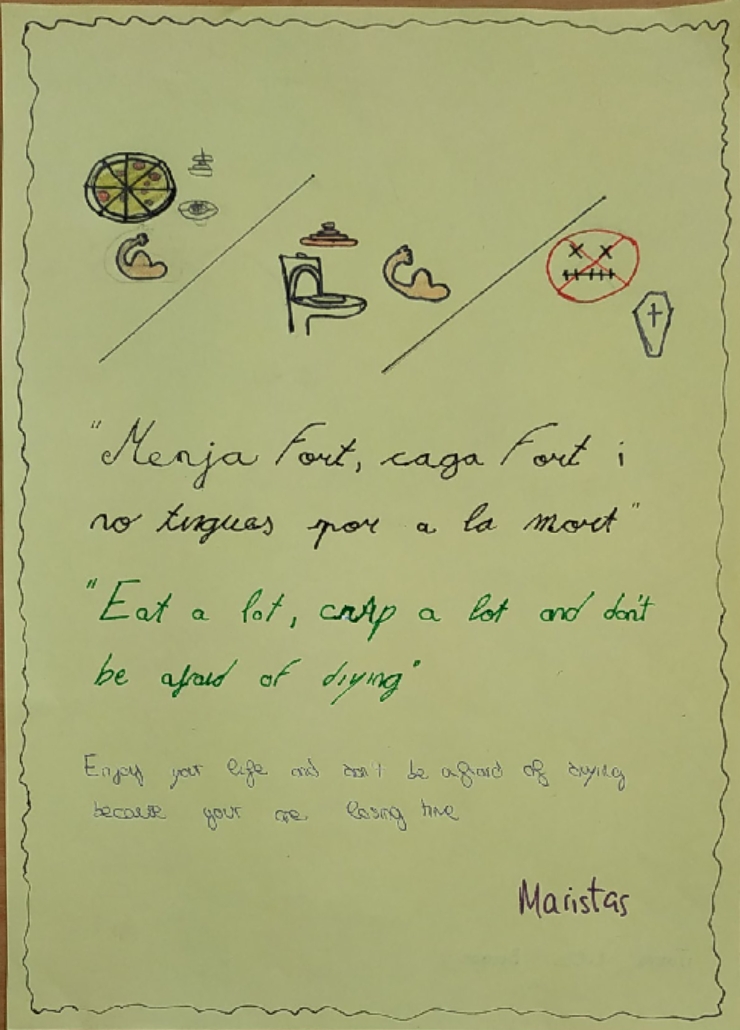 "Menja Fort, caga Fort i
no tingues por a la mort"
"Eat a lot, crap a lot and don't
be afraid of diying"
Enjoy your life and don't be afraid of diying
because your are losing time
Maristas